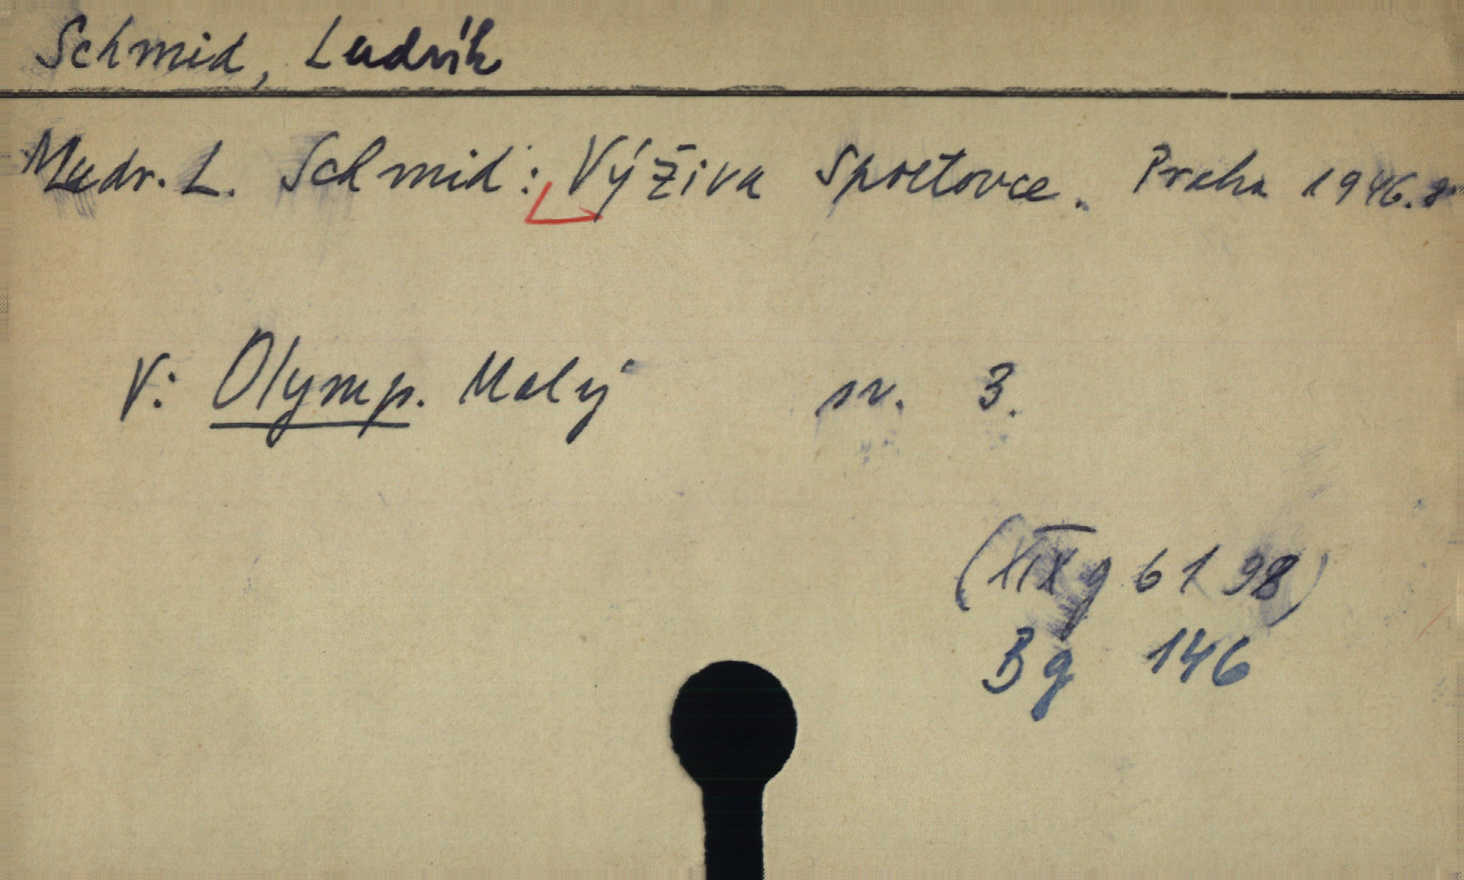 Schmid, Ludvík
Mudr. L. Schmid: Výživa sportovce. Praha 1946. 8°
V: Olymp. Malý sv. 3.
(XIX g 6198)
Bg 146